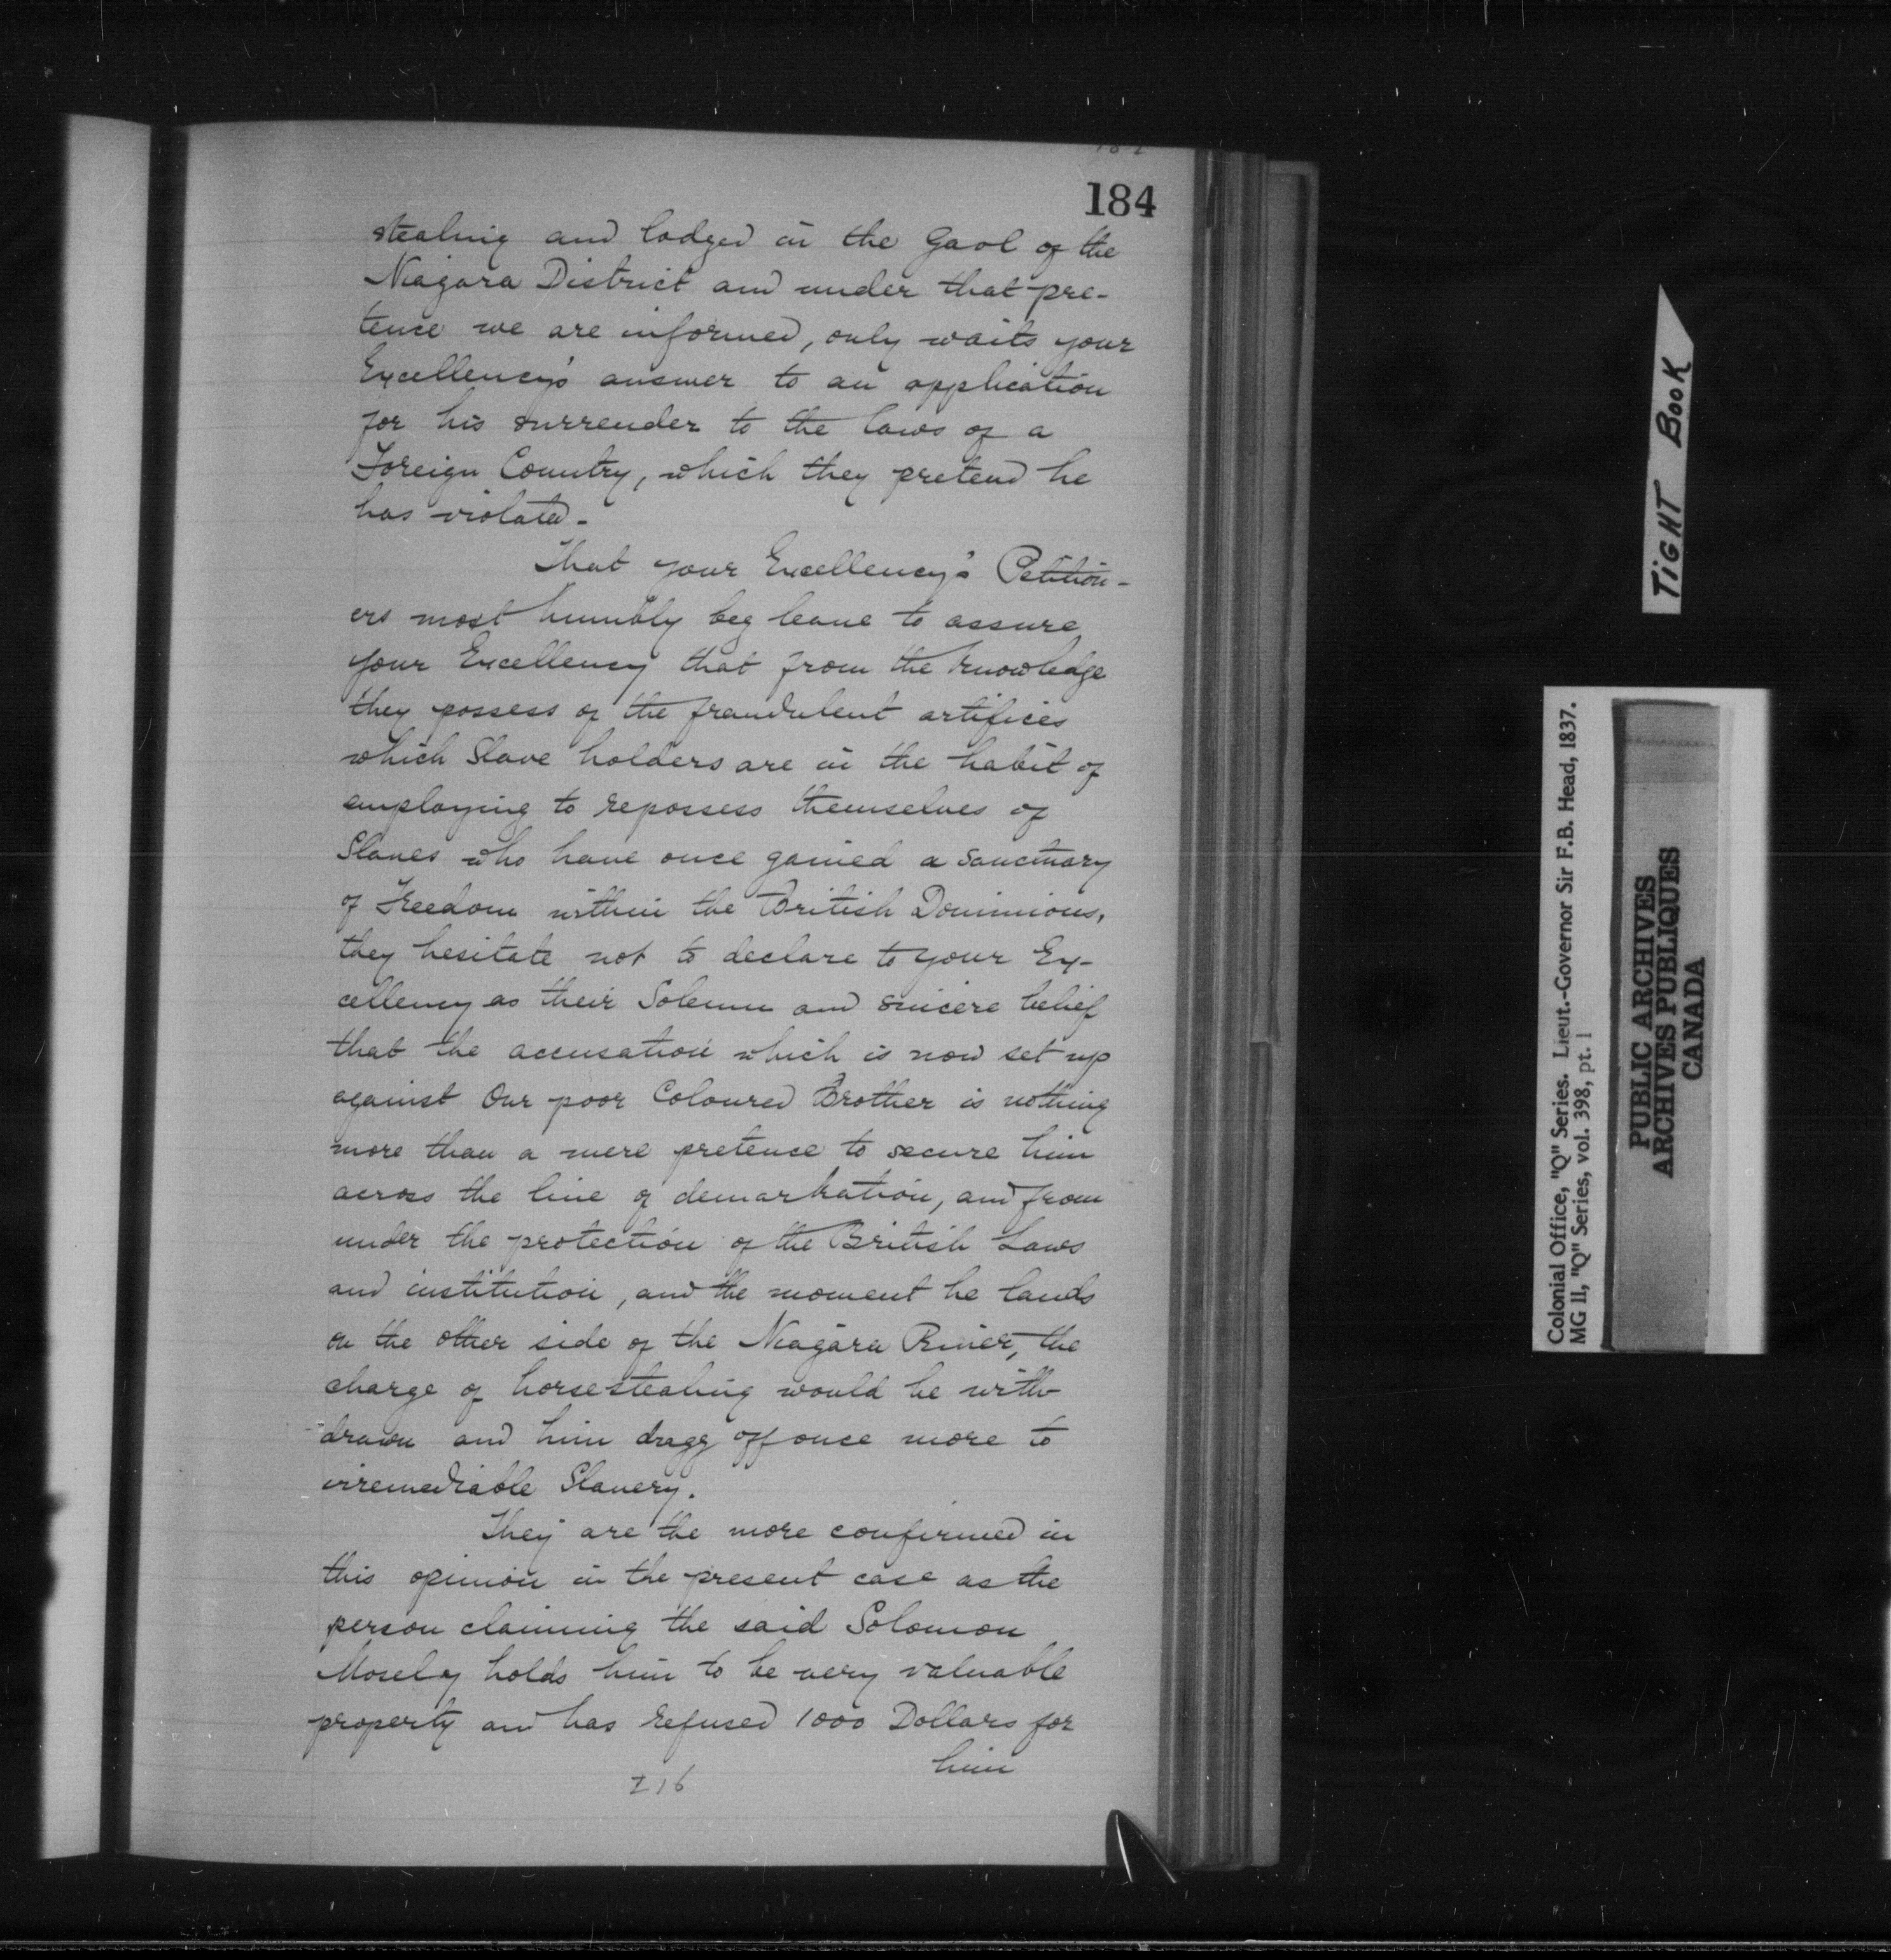 184
stealing and lodged in the Gaol of the
Niagara District and under that pre-
tence we are informed, only waits your
Excellency's answer to an application
for his surrender to the laws of a
Foreign Country, which they pretend he
has violated -
That your Excellency's Petition-
ers most humbly beg leave to assure
your Excellency that from the knowledge
they possess of the fraudulent artifices
which Slave holders are in the habit of
employing to repossess themselves of
Slaves who have once gained a sanctuary
of Freedom within the British Dominions,
they hesitate not to declare to your Ex-
cellency as their Solemn and sincere belief
that the accusation which is now set up
against Our poor Coloured Brother is nothing
more than a mere pretence to secure him
across the line of demarkation, and from
under the protection of the British Laws
and institution, and the moment he lands
on the other side of the Niagara River, the
charge of horsestealing would be with-
drawn and him dragg off once more to
irremediable Slavery.
They are the more confirmed in
this opinion in the present case as the
person claiming the said Solomon
Mosely holds him to be very valuable
property and has refused 1000 Dollars for
him
216
TIGHT BOOK
Colonial Office, "Q" Series. Lieut.-Governor Sir F.B. Head, 1837.
MG 11, "Q" Series, vol. 398, pt. 1
PUBLIC ARCHIVES
ARCHIVES PUBLIQUES
CANADA